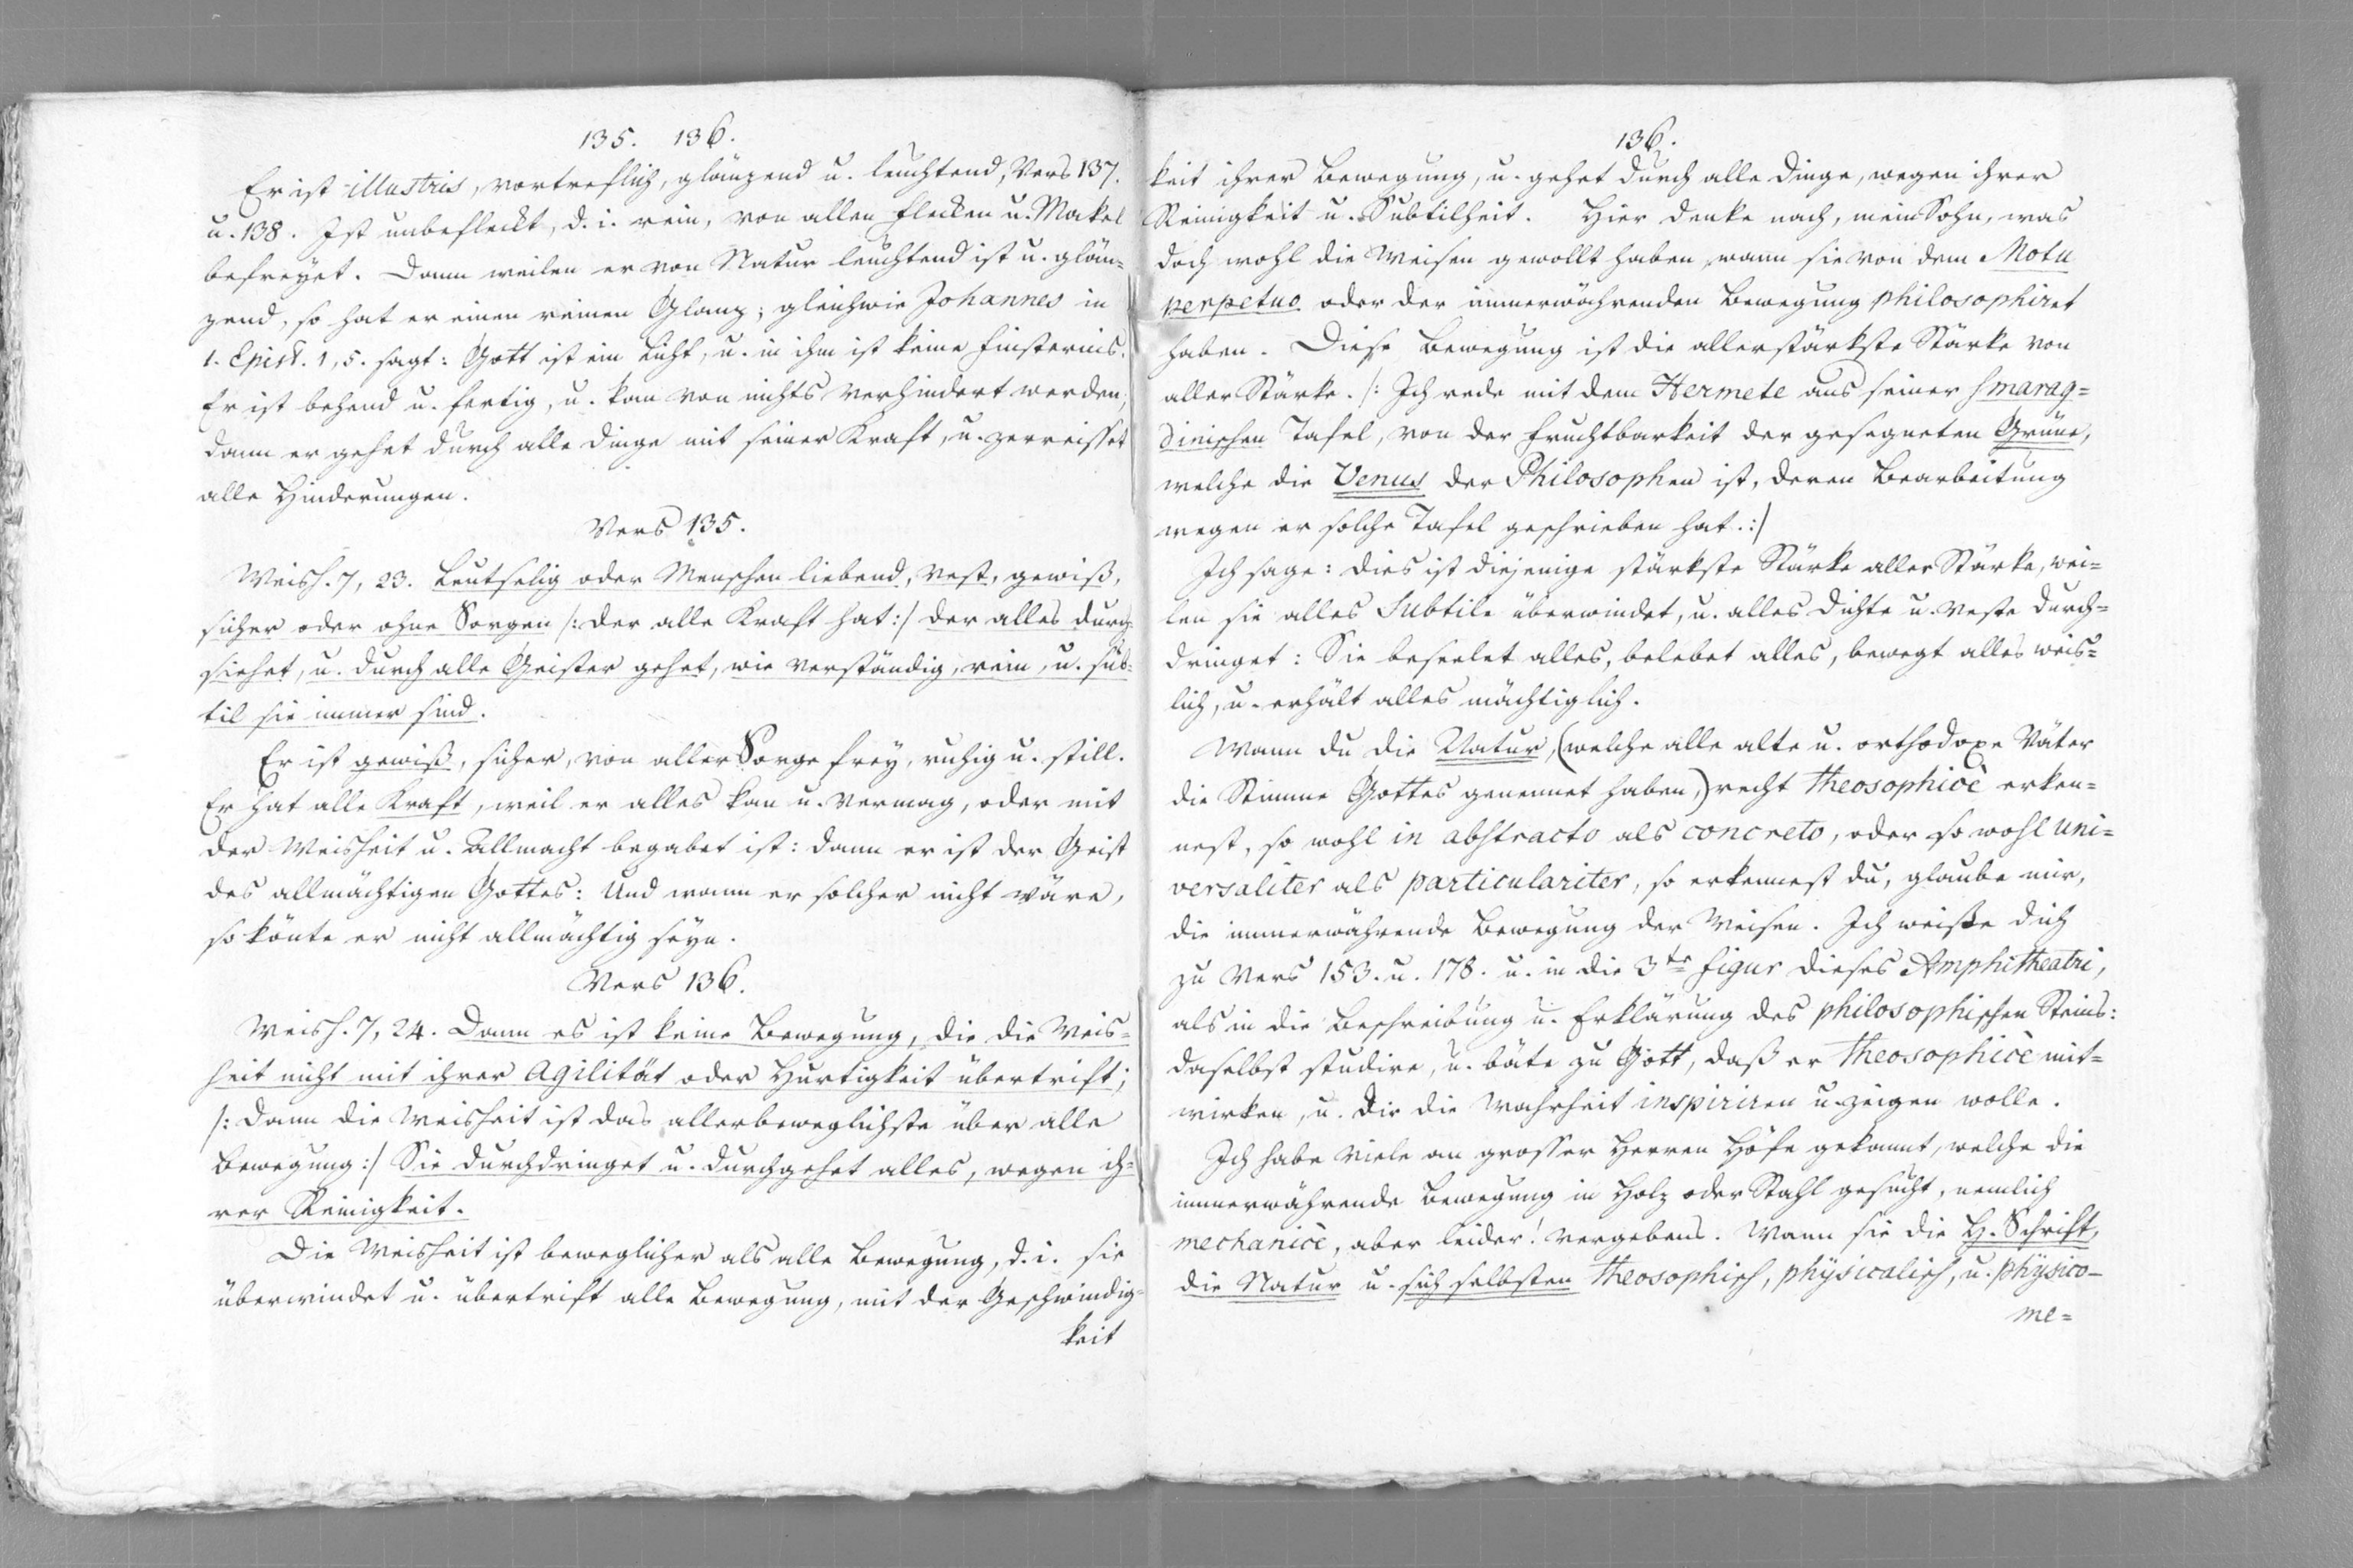 135. 136.
Er ist illustris, vortreflich, glänzend u. leuchtend, Vers 137.
u. 138. Ist unbefleckt, d. i. rein, von allen Flecken u. Makel
befreyet. Dann weilen er von Natur leuchtend ist u. glän=
zend, so hat er einen reinen Glanz; gleichwie Johannes in
1. Epist. 1, 5. sagt: Gott ist ein Licht, u. in ihm ist keine Finsternis.
Er ist behend u. fertig, u. kan von nichts verhindert werden,
dann er gehet durch alle Dinge mit seiner Kraft, u. zerreisset
alle Hinderungen.
Vers 135.
Weish. 7, 23. Leutselig oder Menschen liebend, vest, gewiß,
sicher oder ohne Sorgen /: der alle Kraft hat :/ der alles durch=
siehet, u. durch alle Geister gehet, wie verständig, rein, u. sub=
til sie immer sind.
Er ist gewiß, sicher, von aller Sorge frey, ruhig u. still.
Er hat alle Kraft, weil er alles kan u. vermag, oder mit
der Weisheit u. Allmacht begabet ist: dann er ist der Geist
des allmächtigen Gottes: Und wann er solcher nicht wäre,
so könte er nicht allmächtig seyn.
Vers 136.
Weish. 7, 24. Dann es ist keine Bewegung, die die Weis=
heit nicht mit ihrer Agilität oder Hurtigkeit übertrift;
/: Dann die Weisheit ist das allerbeweglichste über alle
Bewegung :/ Sie durchdringet u. durchgehet alles, wegen ih=
rer Reinigkeit.
Die Weisheit ist beweglicher als alle Bewegung, d. i. sie
überwindet u. übertrift alle Bewegung, mit der Geschwindig=
keit
136.
keit ihrer Bewegung, u. gehet durch alle Dinge, wegen ihrer
Reinigkeit u. Subtilheit. Hier denke nach, mein Sohn, was
doch wohl die Weisen gewollt haben, wann sie von dem Motu
perpetuo oder der immerwährenden Bewegung philosophiret
haben. Diese Bewegung ist die allerstärkste Stärke von
aller Stärke. /: Ich rede mit dem Hermete aus seiner smarag=
dinischen Tafel, von der Fruchtbarkeit der gesegneten Grüne,
welche die Venus der Philosophen ist, deren Bearbeitung
wegen er solche Tafel geschrieben hat. :/
Ich sage: dies ist diejenige stärkste Stärke aller Stärke, wei=
len sie alles Subtile überwindet, u. alles Dichte u. Veste durch=
dringet: Sie beseelet alles, belebet alles, bewegt alles weis=
lich, u. erhält alles mächtiglich.
Wann du die Natur, (welche alle alte u. orthodoxe Väter
die Stimme Gottes genennet haben,) recht theosophicè erken=
nest, so wohl in abstracto als concreto, oder so wohl uni=
versaliter als particulariter, so erkennest du, glaube mir,
die immerwährende Bewegung der Weisen. Ich weiße dich
zu Vers 153. u. 178. u. in die 3te Figur dieses Amphitheatri,
als in die Beschreibung u. Erklärung des philosophischen Steins:
daselbst studire, u. bäte zu Gott, daß er theosophicè mit=
wirken, u. dir die Wahrheit inspiriren u. zeigen wolle.
Ich habe viele an grosser Herren Höfe gekannt, welche die
immerwährende Bewegung in Holz oder Stahl gesucht, nemlich
mechanicè, aber leider! vergebens. Wann sie die H. Schrift,
die Natur u. sich selbsten theosophisch, physicalisch, u. physico-
me=